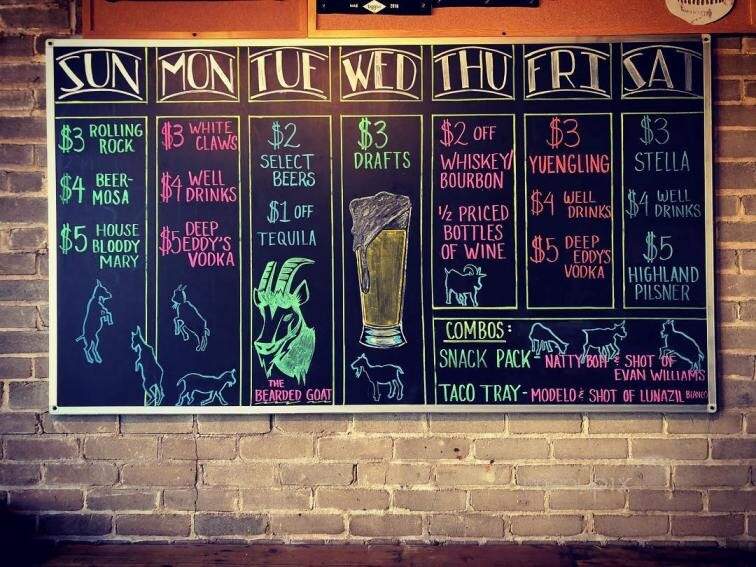 SUN
MON
TUE
WED
THU
FRI
SAT
$3 ROLLING
ROCK
$4 BEER-
MOSA
$5 HOUSE
BLOODY
MARY
$3 WHITE
CLAWS
$4 WELL
DRINKS
$5 DEEP
EDDY'S
VODKA
$2
SELECT
BEERS
$1 OFF
TEQUILA
THE
BEARDED GOAT
$3
DRAFTS
$2 OFF
WHISKEY/
BOURBON
1/2 PRICED
BOTTLES
OF WINE
$3
YUENGLING
$4 WELL
DRINKS
$5 DEEP
EDDY'S
VODKA
$3
STELLA
$4 WELL
DRINKS
$5
HIGHLAND
PILSNER
COMBOS:
SNACK PACK - NATTY BOH & SHOT OF
EVAN WILLIAMS
TACO TRAY - MODELO & SHOT OF LUNAZIL